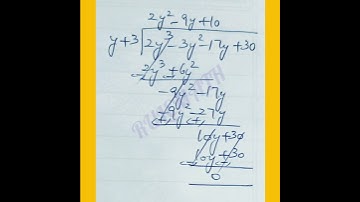 2y² - 9y + 10
y + 3 ) 2y³ - 3y² - 17y + 30
2y³ + 6y²
- 9y² - 17y
- 9y² - 27y
10y + 30
10y + 30
0